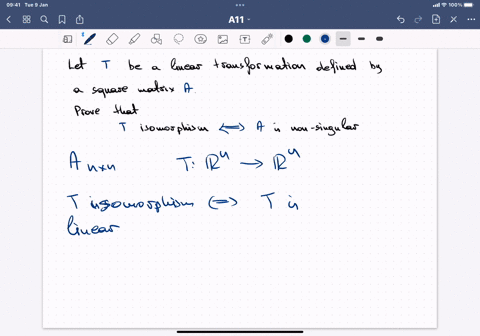 09:41 Tue 9 Jan
100%
A11
Let T be a linear transformation defined by
a square matrix A.
Prove that
T isomorphism ⟺ A is non-singular
A n×n T: ℝⁿ → ℝⁿ
T issomorphism ⟺ T is
linear